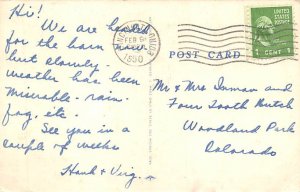 Hi!
We are headed
for the barn now
but slowly.
weather has been
miserable - rain -
fog, etc.
See you in a
couple of weeks
Hank & Virg.
FEB
1950
POST CARD
UNITED STATES
POSTAGE
1 CENT 1
Mr & Mrs Inman and
Four Tooth Butch
Woodland Park
Colorado